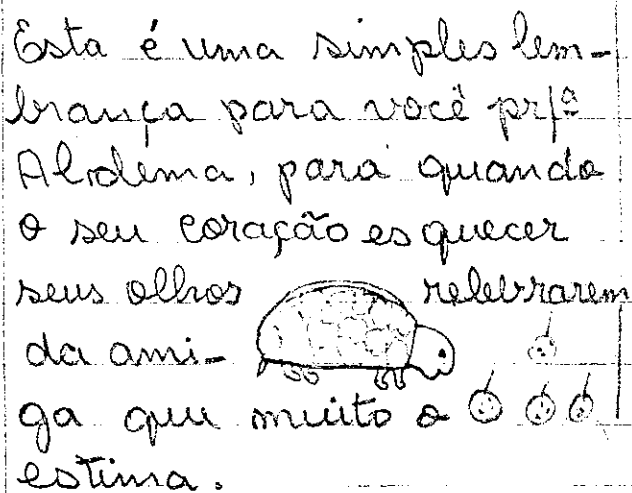 Esta é uma simples lem-
brança para você prfª
Aldema, para quando
o seu coração esquecer
seus olhos relebrarem
da ami-
ga que muito a
estima.